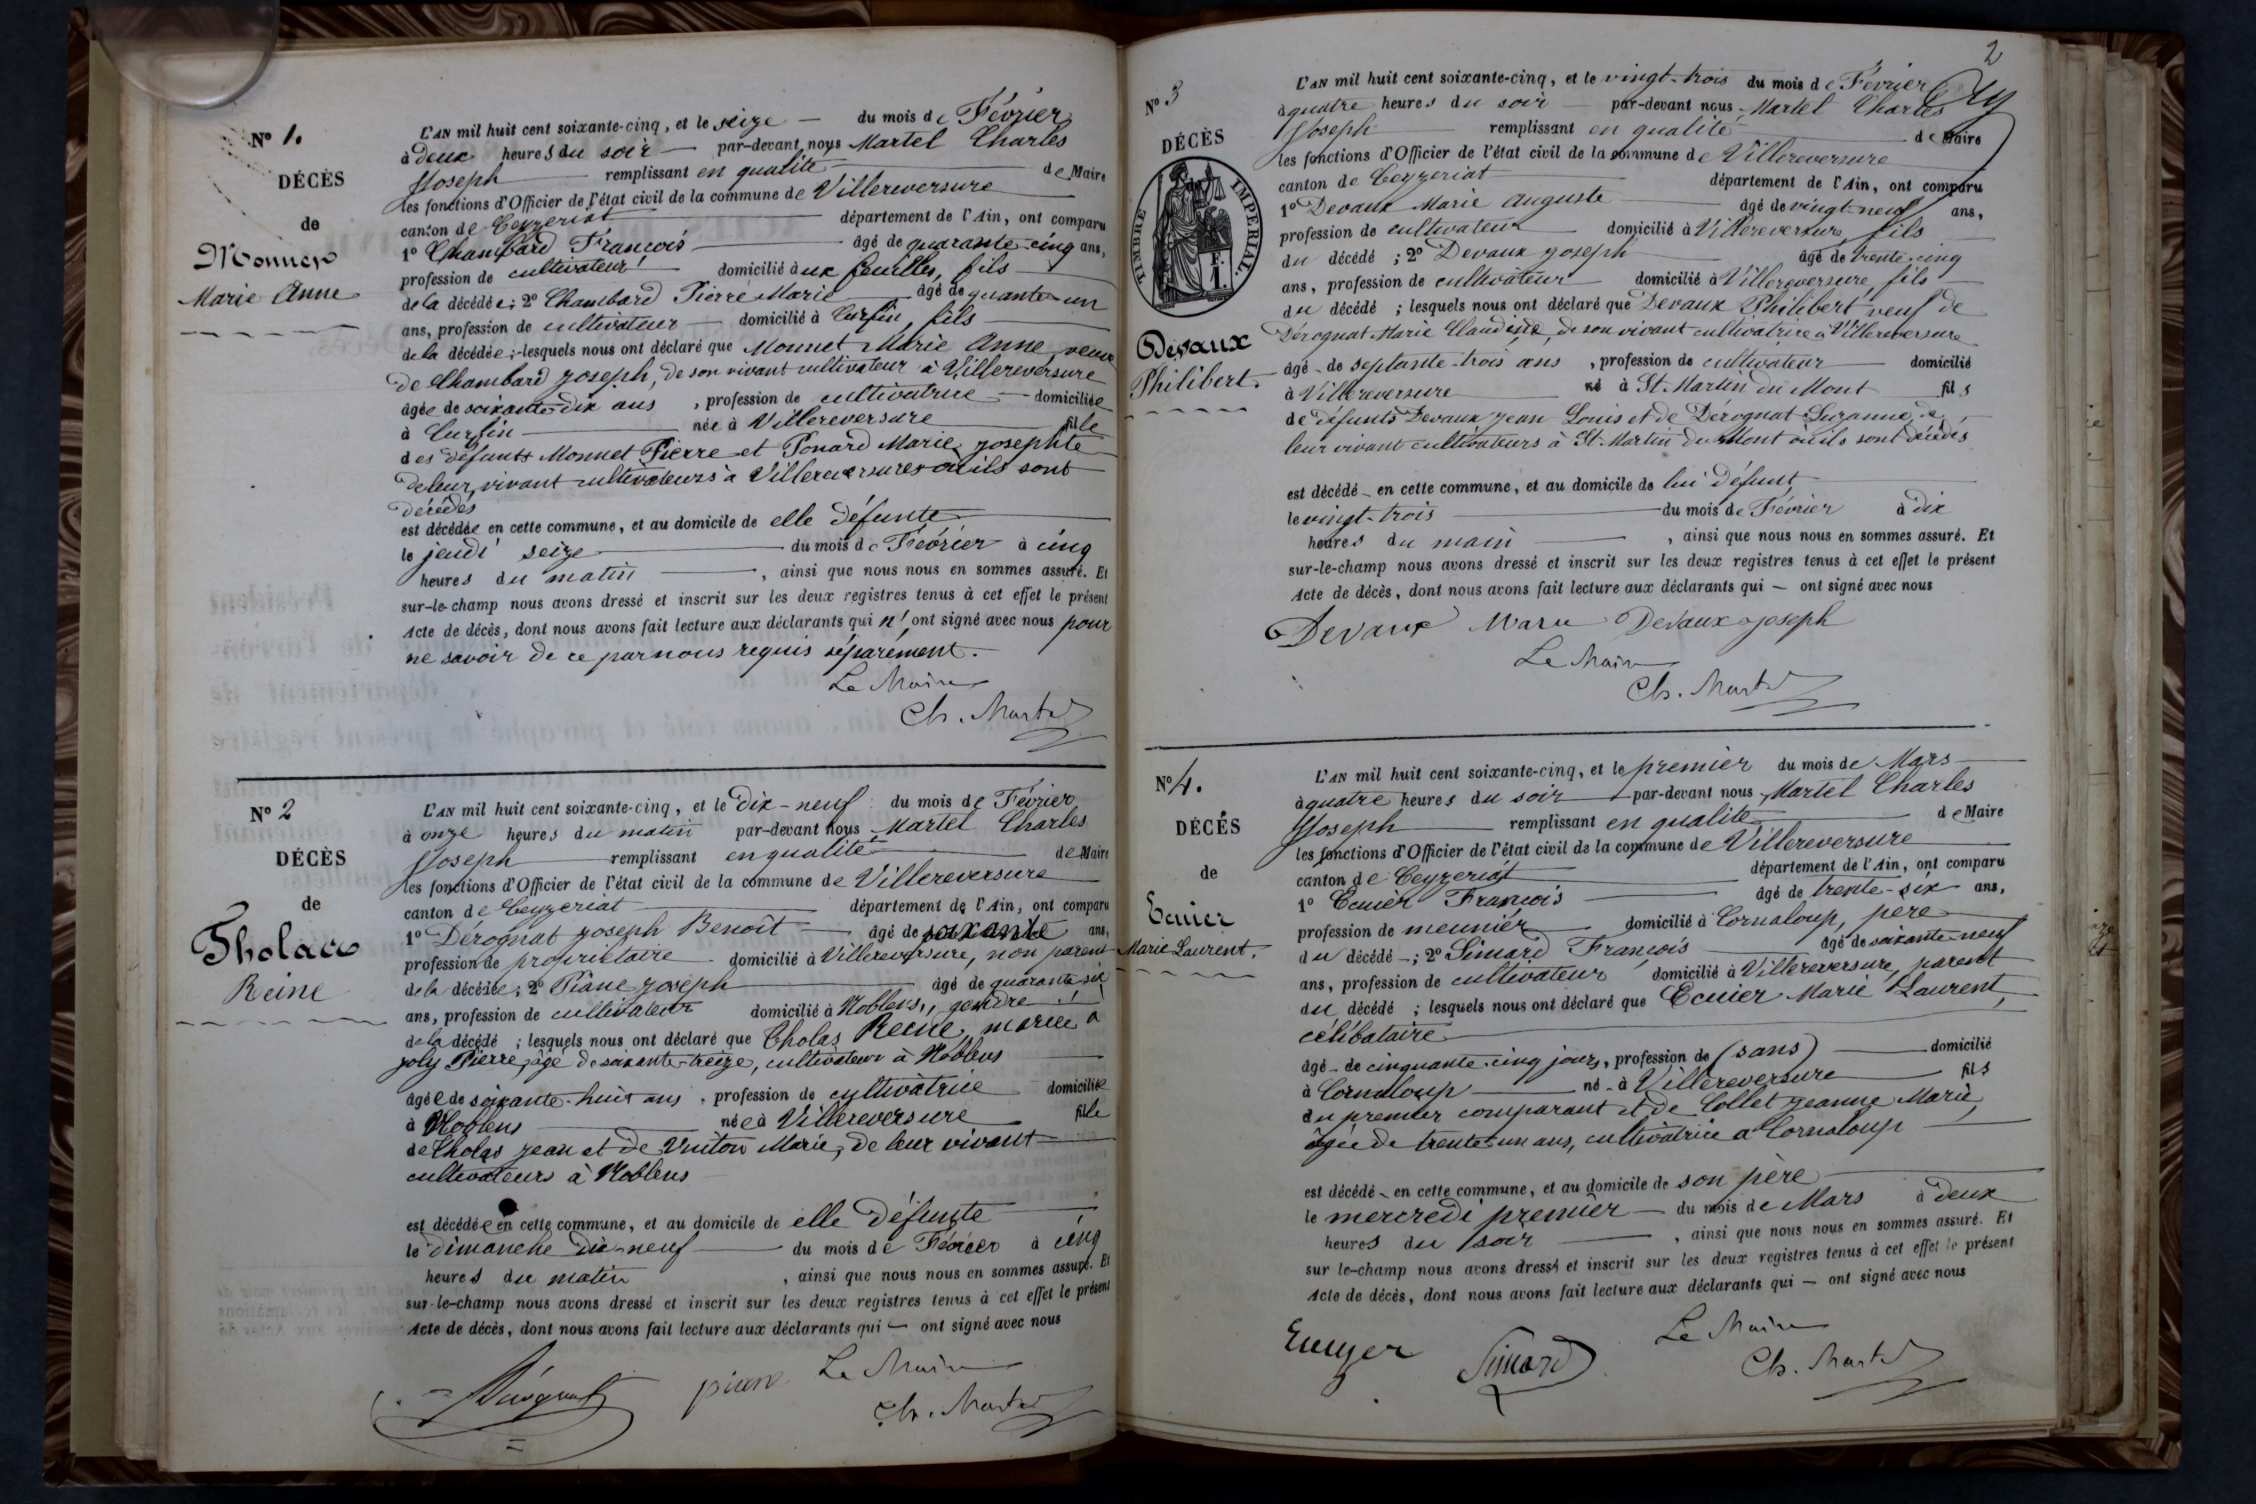 N° 1.
DÉCÈS
de
Monnet
Marie Anne
L'AN mil huit cent soixante-cinq, et le seize — du mois de Février
à deux heures du soir — par-devant nous Martel Charles
Joseph — remplissant en qualité de Maire
les fonctions d'Officier de l'état civil de la commune de Villereversure
canton de Ceyzeriat — département de l'Ain, ont comparu
1° Chambard François — âgé de quarante-cinq ans,
profession de cultivateur — domicilié à aux feuilles, fils —
de la décédée; 2° Chambard Pierre Marie — âgé de quarante-un
ans, profession de cultivateur — domicilié à Turfin, fils —
de la décédée; lesquels nous ont déclaré que Monnet Marie Anne, veuve
de Chambard Joseph, de son vivant cultivateur à Villereversure
âgée de soixante-dix ans, profession de cultivatrice — domiciliée
à Turfin — née à Villereversure — fille
des défunts Monnet Pierre et Ponard Marie Josephte
de leur vivant cultivateurs à Villereversure où ils sont
décédés
est décédée en cette commune, et au domicile de elle défunte —
le jeudi seize — du mois de Février à cinq
heures du matin —, ainsi que nous nous en sommes assuré. Et
sur-le-champ nous avons dressé et inscrit sur les deux registres tenus à cet effet le présent
Acte de décès, dont nous avons fait lecture aux déclarants qui n'ont signé avec nous pour
ne savoir de ce par nous requis séparément.
Le Maire
Ch. Martel
N° 2
DÉCÈS
de
Tholas
Reine
L'AN mil huit cent soixante-cinq, et le Dix-neuf du mois de Février
à onze heures du matin par-devant nous Martel Charles
Joseph — remplissant en qualité — de Maire
les fonctions d'Officier de l'état civil de la commune de Villereversure
canton de Ceyzeriat — département de l'Ain, ont comparu
1° Dérognat Joseph Benoît — âgé de soixante ans,
profession de propriétaire domicilié à Villereversure, non parent
de la décédée; 2° Piane Joseph — âgé de quarante six
ans, profession de cultivateur domicilié à Noblens, gendre
de la décédé; lesquels nous ont déclaré que Tholas Reine, mariée à
Joly Pierre, âgé de soixante-treize, cultivateur à Noblens
âgée de soixante-huit ans, profession de cultivatrice domiciliée
à Noblens — née à Villereversure — fille
de Tholas Jean et de Vuiton Marie, de leur vivant
cultivateurs à Noblens
est décédée en cette commune, et au domicile de elle défunte —
le dimanche dix-neuf — du mois de Février à cinq
heures du matin, ainsi que nous nous en sommes assuré. Et
sur-le-champ nous avons dressé et inscrit sur les deux registres tenus à cet effet le présent
Acte de décès, dont nous avons fait lecture aux déclarants qui — ont signé avec nous
Dérognat piane Le Maire
Ch. Martel
2
N° 3
DÉCÈS
TIMBRE IMPÉRIAL.
Devaux
Philibert.
L'AN mil huit cent soixante-cinq, et le vingt-trois du mois de Février
à quatre heures du soir — par-devant nous Martel Charles
Joseph — remplissant en qualité — de Maire
les fonctions d'Officier de l'état civil de la commune de Villereversure
canton de Ceyzeriat — département de l'Ain, ont comparu
1° Devaux Marie Auguste — âgé de vingt-neuf ans,
profession de cultivateur domicilié à Villereversure, fils —
du décédé; 2° Devaux Joseph — âgé de trente-cinq
ans, profession de cultivateur domicilié à Villereversure, fils —
du décédé; lesquels nous ont déclaré que Devaux Philibert veuf de
Dérognat Marie Claudine, de son vivant cultivatrice à Villereversure
âgé de septante-trois ans, profession de cultivateur — domicilié
à Villereversure né à St. Martin du Mont — fils
de défunts Devaux Jean Louis et de Dérognat Suzanne, de
leur vivant cultivateurs à St. Martin du Mont où ils sont décédés
est décédé en cette commune, et au domicile de lui défunt —
le vingt-trois — du mois de Février à dix
heures du matin —, ainsi que nous nous en sommes assuré. Et
sur-le-champ nous avons dressé et inscrit sur les deux registres tenus à cet effet le présent
Acte de décès, dont nous avons fait lecture aux déclarants qui — ont signé avec nous
Devaux Marie Devaux Joseph
Le Maire
Ch. Martel
N° 4.
DÉCÈS
de
Ecuier
Marie Laurent.
L'AN mil huit cent soixante-cinq, et le premier du mois de Mars —
à quatre heures du soir — par-devant nous Martel Charles
Joseph — remplissant en qualité — de Maire
les fonctions d'Officier de l'état civil de la commune de Villereversure
canton de Ceyzeriat — département de l'Ain, ont comparu
1° Ecuier François — âgé de trente-six ans,
profession de meunier — domicilié à Cornaloup, père
du décédé —; 2° Simard François — âgé de soixante-neuf
ans, profession de cultivateur domicilié à Villereversure, parent
du décédé; lesquels nous ont déclaré que Ecuier Marie Laurent,
célibataire —
âgé de cinquante-cinq jours, profession de (sans) — domicilié
à Cornaloup — né à Villereversure — fils
du premier comparant et de Collet Jeanne Marie,
âgée de trente-un ans, cultivatrice à Cornaloup —
est décédé en cette commune, et au domicile de son père —
le mercredi premier — du mois de Mars à deux
heures du soir —, ainsi que nous nous en sommes assuré. Et
sur-le-champ nous avons dressé et inscrit sur les deux registres tenus à cet effet le présent
Acte de décès, dont nous avons fait lecture aux déclarants qui — ont signé avec nous
Ecuyer Simard Le Maire
Ch. Martel